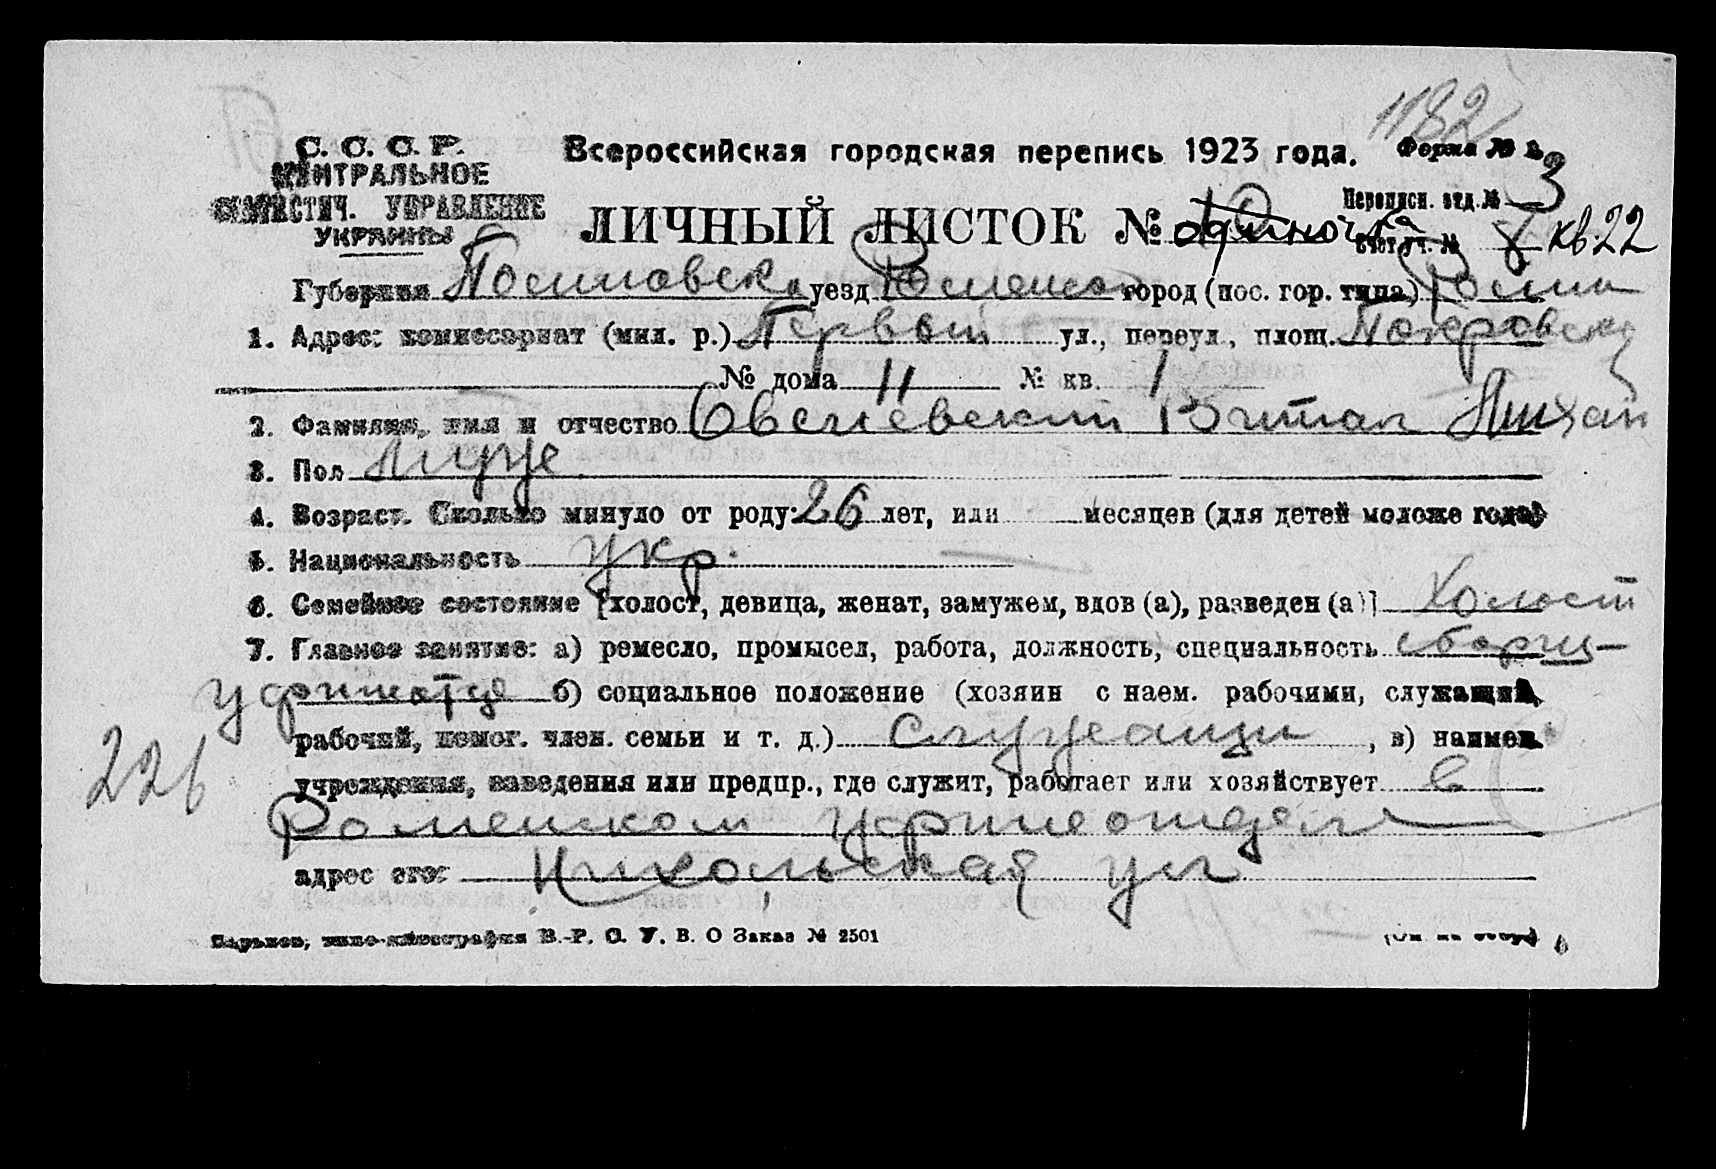 1182
С. С. С. Р.
ЦЕНТРАЛЬНОЕ
СТАТИСТИЧ. УПРАВЛЕНИЕ
УКРАИНЫ
Всероссийская городская перепись 1923 года.
Форма № 2
Переписн. отд. № 3
ЛИЧНЫЙ ЛИСТОК № одиночка
Счет. уч. № 8 кв. 22
Губерния Полтавска уезд Роменск город (пос. гор. типа) Ромни
1. Адрес: комиссариат (мил. р.) Первый ул., переул., площ. Покровск
№ дома 11 № кв. 1
2. Фамилия, имя и отчество Витал Михай
3. Пол Муж
4. Возраст. Сколько минуло от роду: 26 лет, или месяцев (для детей моложе года)
5. Национальность укр.
6. Семейное состояние [холост, девица, женат, замужем, вдов (а), разведен (а)] Холост
7. Главное занятие: а) ремесло, промысел, работа, должность, специальность сборщ-
б) социальное положение (хозяин с наем. рабочими, служащий,
рабочий, помог. член. семьи и т. д.) Служащи , в) наимен.
учреждения, заведения или предпр., где служит, работает или хозяйствует в
226
Роменском
адрес его: Никольская ул
Харьков, типо-литография В.-Р. С. У. В. О Заказ № 2501